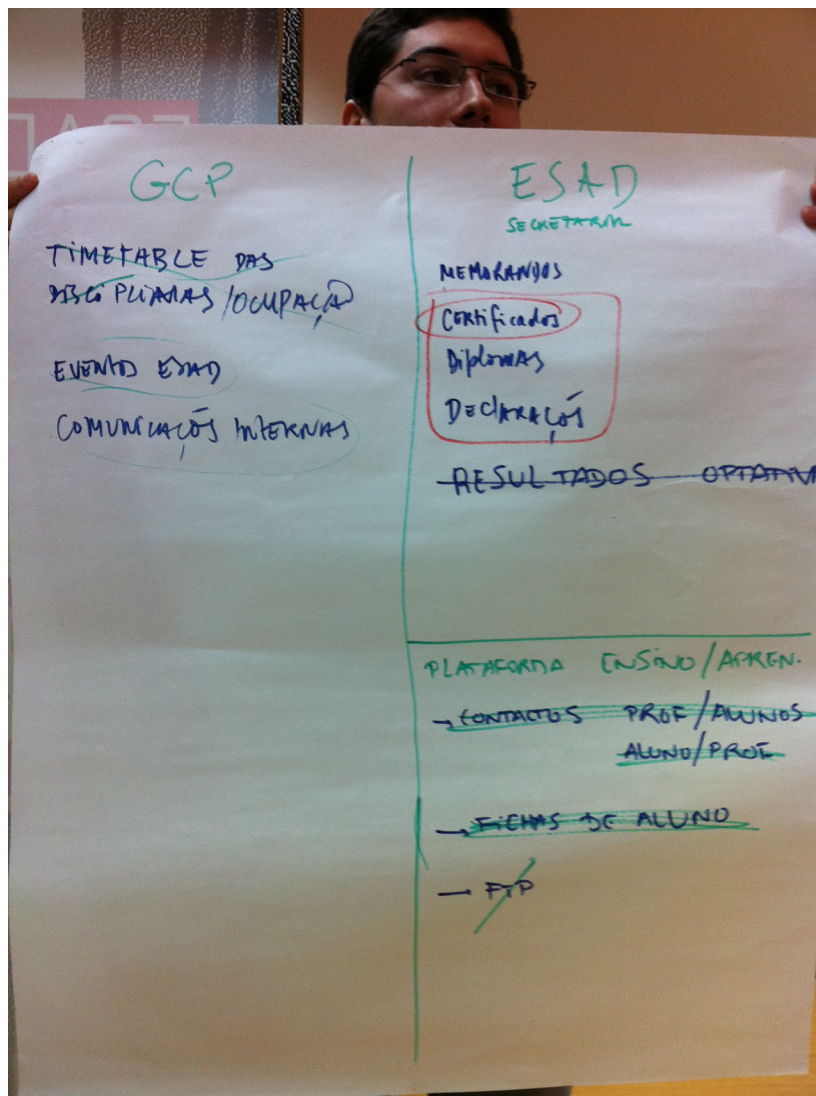 GCP
TIMETABLE DAS
DISCIPLINAS/OCUPAÇÃO
EVENTO ESAD
COMUNICAÇÕS INTERNAS
ESAD
SECRETARIA
MEMORANDOS
CERTificados
DiplomAS
DEClARAÇÕS
RESULTADOS OPTATIV
PLATAFORMA ENSINO/APREN.
→ CONTACTOS PROF/ALUNOS
ALUNO/PROF
→ FICHAS DE ALUNO
— FTP